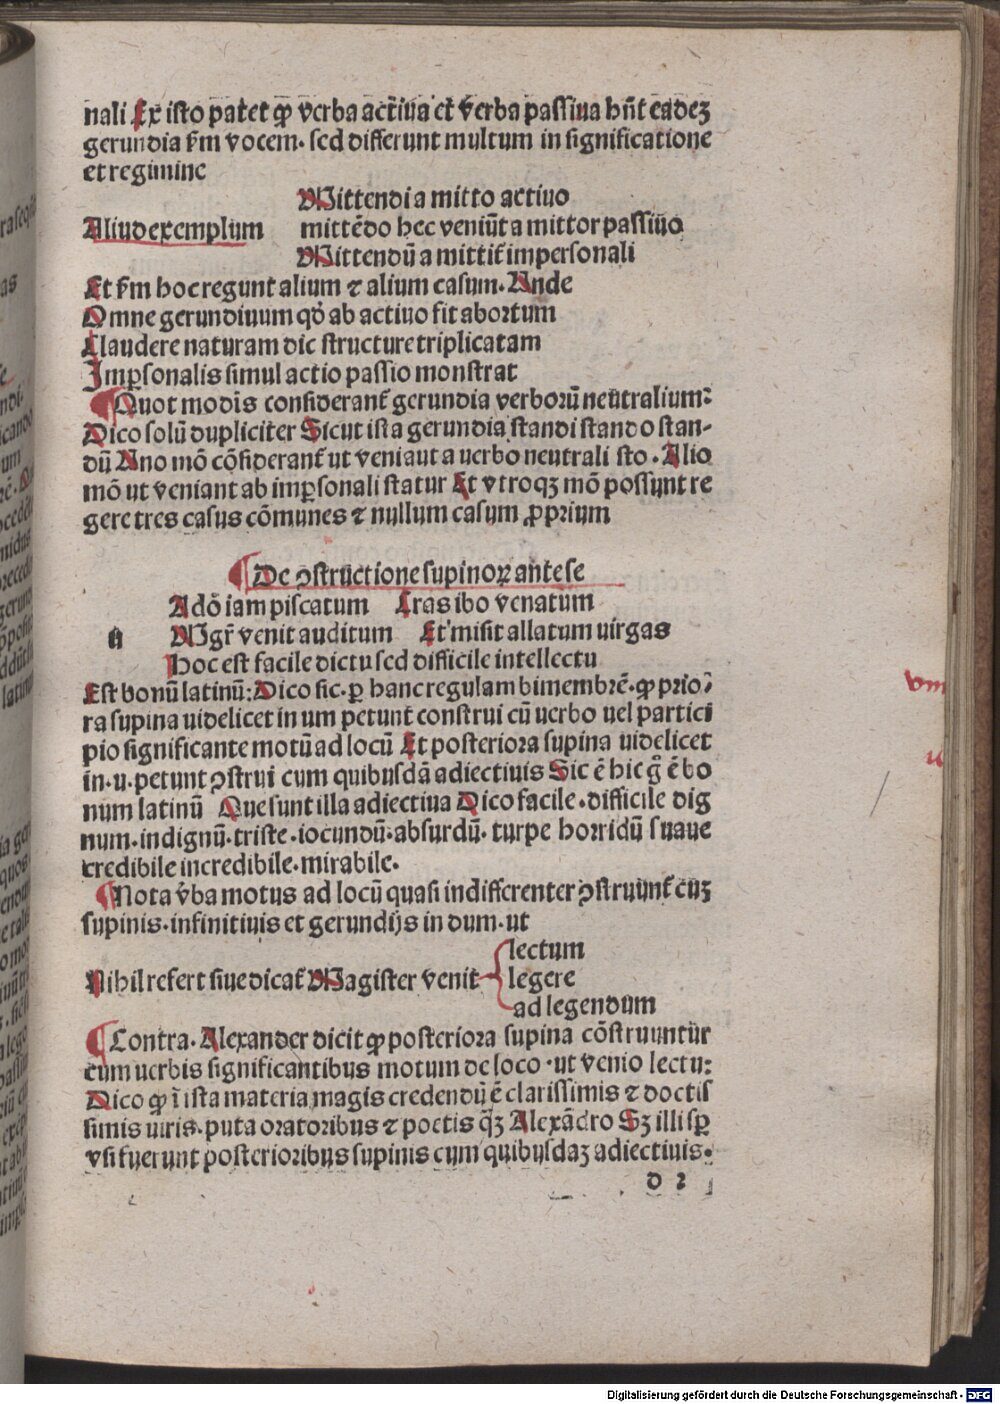 nali Ex isto patet ꝙ verba actiua et verba passiua hñt eadeꝫ
gerundia ẜm vocem. sed differunt multum in significatione
et regimine
Mittendi a mitto actiuo
Aliud exemplum mittēdo hec veniūt a mittor passiuo
Mittendū a mittit̄ impersonali
Et ẜm hoc regunt alium ⁊ alium casum. Unde
Omne gerundiuum qđ ab actiuo fit abortum
Claudere naturam dic structure triplicatam
Imꝑsonalis simul actio passio monstrat
¶ Quot modis considerant̄ gerundia verborū neutralium?
Dico solū dupliciter Sicut ista gerundia standi stando stan-
dū Uno mō cōsiderant̄ ut veniaut a uerbo neutrali sto. Alio
mō ut veniant ab imꝑsonali statur Et vtroqꝫ mō possunt re
gere tres casus cōmunes ⁊ nullum casum ꝓprium
¶ De ↄstructione supinoꝝ añte se
Adō iam piscatum Cras ibo venatum
ñ Mgr̄ venit auditum Et misit allatum uirgas
Hoc est facile dictu sed difficile intellectu
Est bonū latinū: Dico sic. ꝑ hanc regulam bimembrē. ꝙ prio
ra supina uidelicet in um petunt construi cū uerbo uel partici
pio significante motū ad locū Et posteriora supina uidelicet
in. u. petunt ↄstrui cum quibusdā adiectiuis Sic ē hic g̊ ē bo
num latinū Que sunt illa adiectiua Dico facile. difficile dig
num. indignū. triste. iocundū. absurdū. turpe horridū suaue
credibile incredibile. mirabile.
¶ Nota v̄ba motus ad locū quasi indifferenter ↄstruunt̄ cuꝫ
supinis. infinitiuis et gerundijs in dum. ut
lectum
Nihil refert siue dicat̄ Magister venit legere
ad legendum
¶ Contra. Alexander dicit ꝙ posteriora supina cōstruuntur
cum uerbis significantibus motum de loco. ut venio lectu:
Dico ꝙ ī ista materia magis credendū ē clarissimis ⁊ doctis
simis uiris. puta oratoribus ⁊ poetis q̄ꝫ Alexādro Sꝫ illi sꝑ
vsi fuerunt posterioribus supinis cum quibusdaꝫ adiectiuis.
d 2
Digitalisierung gefördert durch die Deutsche Forschungsgemeinschaft - DFG